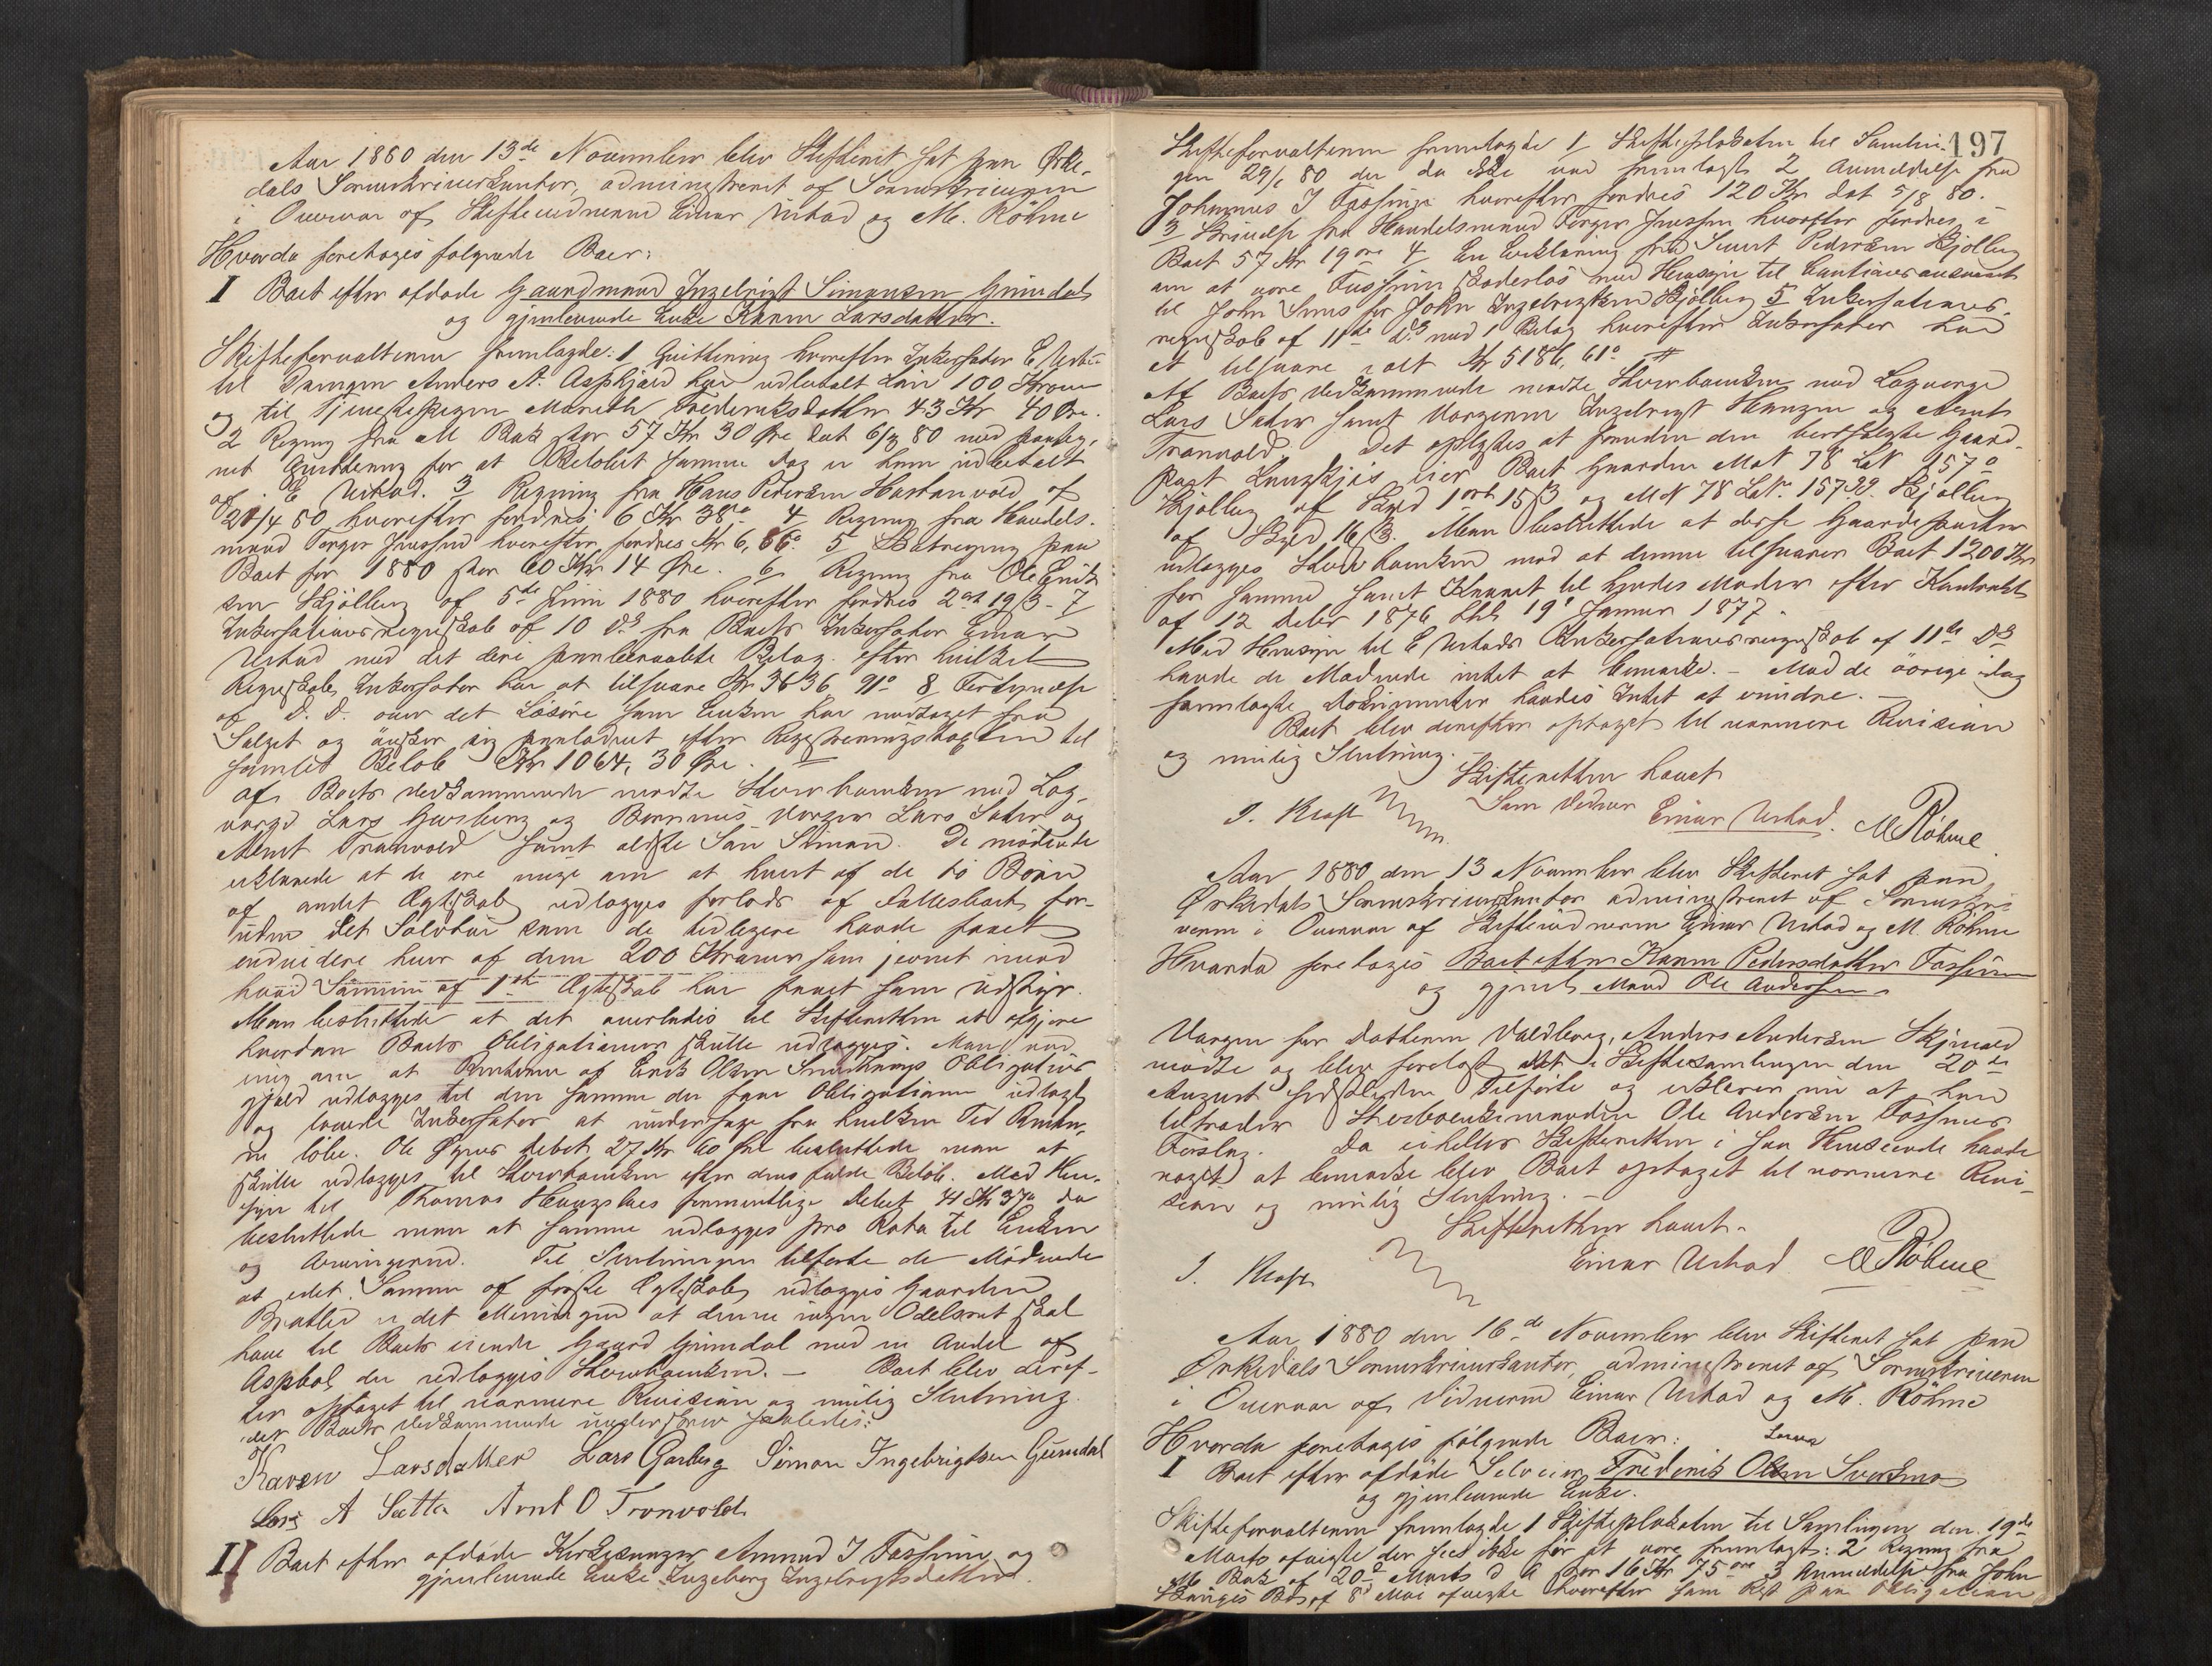 Aar 1880 den 13de November blev Skifteret sat paa Orke-
dals Sorenskriverkontor, administreret af Sorenskriveren
i Overvær af Skiftevidnerne Einar Urstad og M. Röhme
Hvorda foretoges følgende Boer:
I Boet efter afdøde Gaardmand Ingebrigt Simonsen Grimdal
og gjenlevende Enke Karen Larsdatter.
Skifteforvalteren fremlagde: 1 Quittering hvorefter Inkassator E Urstad
til Drengen Anders A. Aspkjær har udbetalt Løn 100 Kroner
og til Tjenestepigen Mareth Frederiksdatter 43 Kr 40 Øre.
2 Regning fra M Bak stor 57 Kr 30 Øre dat 6/3 80 med paateg-
net Quittering for at Beløbet samme Dag er ham udbetalt
af E Urstad. 3 Regning fra Hans Pedersen Hostonvold af
21/4 80 hvorefter fordres 6 Kr 38 ø 4 Regning fra Handels-
mand Torger Jenssen hvorefter fordres Kr 6,66 ø. 5 Skatregning paa
Boet for 1880 stor 60 Kr 14 Øre. 6 Regning fra Ole Erik-
sen Skjølberg af 5de Juni 1880 hvorefter fordres 2 ort 19 ß - 7
Inkassationsregnskab af 10 ds fra Boets Inkassator Einar
Urstad med det deri paaberaabte Bilag. efter hvilket
Regnskab, Inkassator har at tilsvare Kr 3636, 91 ø 8 Fortegnelse
af d. d. over det Løsøre som Enken har modtaget fra
Salget og ønsker sig udlagt efter Registreringstaxten til
samlet Beløb Kr 1064, 30 Øre.
Af Boets Vedkommende mødte Sterboenken med Lag-
værge Lars Garberg og Børnenes Værger Lars Sæter og
Arent Tronvold samt ældste Søn Simon. De mødende
erklærede at de ere enige om at hvert af de to Børn
af andet Ægteskab udlægges forlods af Fællesboet for-
uden det Sølvtøi som de tidligere havde faaet
endvidere hver af dem 200 Kroner som jevnet imod
hvad Sønnen af 1ste Ægteskab har faaet som Udstyr.
Man besluttede at det overlades til Skifteretten at afgjøre
hvordan Boets Obligationer skulle udlægges. Man var
enig om at Renterne af Erik Olsen Obligations
gjæld udlægges til den samme der faar Obligationen udlagt
og lovede Inkassator at undersøge fra hvilken Tid Renter-
ne løbe. Ole Debet, 27 Kr 60 Øre besluttede man at
skulle udlægges til Sterboenken efter dens fulde Beløb. Med Hen-
syn til Thomas formentlige Debet 41 Kr 37 ø da
besluttede man at samme udlægges pro Rata til Enken
og Arvingerne. Til Slutningen tilførte de Mødende
at idet Sønnen af første Ægteskab udlægges Gaarden
er det Meningen at denne ingen Odelsret skal
have til Boets eiende Gaard Grimdal med en Andel af
Aspbøl der udlægges Sterboenken. - Boet blev deref-
ter optaget til nærmere Revision og mulig Slutning
idet Boets Vedkommende underskrev saaledes:
Karen Larsdatter Lars Garberg Simon Ingebrigtsen Grimdal
Lars A Sætter Arnt O Tronvold
II Boet efter afdøde Kirkesanger Amund J Fossum og
gjenlevende Enke Ingeborg Ingebrigtsdatter.
197
Skifteforvalteren fremlagde 1 Skifteplakaten til Samlin-
gen 29/1 80 der da ikke var fremlagt 2 Anmeldelse fra
Johannes J Fossum hvorefter fordres 120 Kr dat 5/8 80.
3 Skrivelse fra Handelsmand Torger Jenssen hvorefter fordres i
Boet 57 Kr 19 Øre 4 En Erklæring fra Sivert Pedersen Skjølberg
om at være Fossum skadesløs med Hensyn til Cautionsansvaret
til John for John Ingebrigtsen Skjølberg 5 Inkassations-
regnskab af 11te ds med 1 Bilag hvorefter Inkassator har
at tilsvare ialt Kr 5186, 61 ø
Af Boets Vedkommende mødte Sterboenken med Lagværge
Lars Sæter samt Værgerne Ingebrigt og Arent
Tronvold. Det oplystes at foruden den bortsolgte Gaard-
part eier Boet Gaarden Mat N 78 Lb N 157 a
Skjølberg af Skyld 1 ort 15 ß og M N 78 Lb N. 157 Skjølberg
af Skyld 16 ß. Man besluttede at disse Gaardeparter
udlægges Sterboenken mod at denne tilsvarer Boet 1200 Kr
for samme samt Kaaret til hendes Moder efter Kontrakt
af 12 Debr 1876 thl 19 Januar 1877.
Med Hensyn til E Urstads Inkassationsregnskab af 11te ds
havde de Mødende intet at bemærke. - Mod de øvrige idag
fremlagte Dokumenter havdes Intet at erindre. -
Boet blev derefter optaget til nærmere Revision
og mulig Slutning.
Skifteretten hævet
Som Vidner
Einar Urstad. M Röhme
Aar 1880 den 13 November blev Skifteret sat paa
Orkedals Sorenskriverkontor administreret af Sorenskri-
veren i Overvær af Skiftevidnerne Einar Urstad og M. Röhme
Hvorda foretoges Boet efter Karen Pedersdatter Fossum
og gjenl. Mand Ole Andersen
Værgen for Datteren Valdborg, Anders Andersen
mødte og blev forelagt det i Skiftesamlingen den 20de
August sidstleden Tilførte og erklærer nu at han
tiltræder Sterboenkemanden Ole Andersen Fossums
Forslag. Da eiheller Skifteretten i saa Henseende havde
noget at bemærke blev Boet optaget til nærmere Revi-
sion og mulig Slutning. -
Skifteretten hævet.
Einar Urstad M Röhme
Aar 1880 den 16de November blev Skifteret sat paa
Orkedals Sorenskriverkontor, administreret af Sorenskriveren
i Overvær af Vidnerne Einar Urstad og M. Röhme
Hvorda foretoges følgende Boer:
I Boet efter afdøde Selveier Frederik Olsen Svorkmo
og gjenlevende Enke.
Skifteforvalteren fremlagde 1 Skifteplakaten til Samlingen den 19de
Marts afvigte der sees ikke før at være fremlagt: 2 Regning fra
M Bak af 20de Marts d A stor 16 Kr 75 Øre 3 Anmeldelse fra John
af 8de Mai afvigte hvorefter som Rest paa Obligation